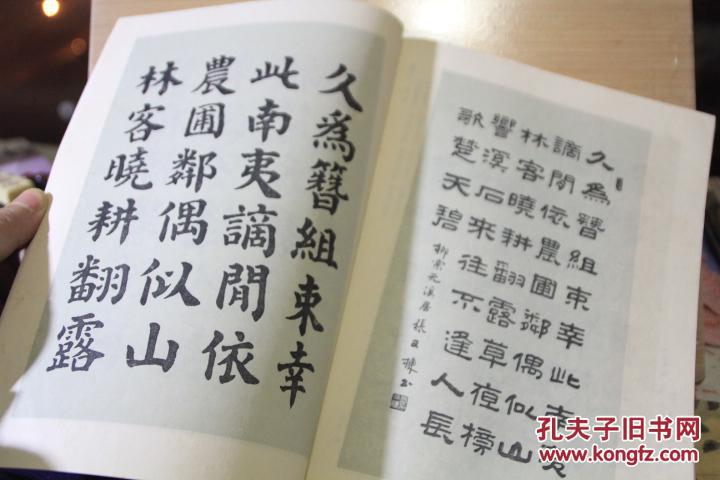 久為簪組束幸此南夷
謫閒依農圃鄰偶似山
林客曉耕翻露草夜榜
響溪石來往不逢人長
歌楚天碧
柳宗元溪居 張又棟書
久為簪組束幸
此南夷謫閒依
農圃鄰偶似山
林客曉耕翻露
孔夫子旧书网
KONGFZ.COM